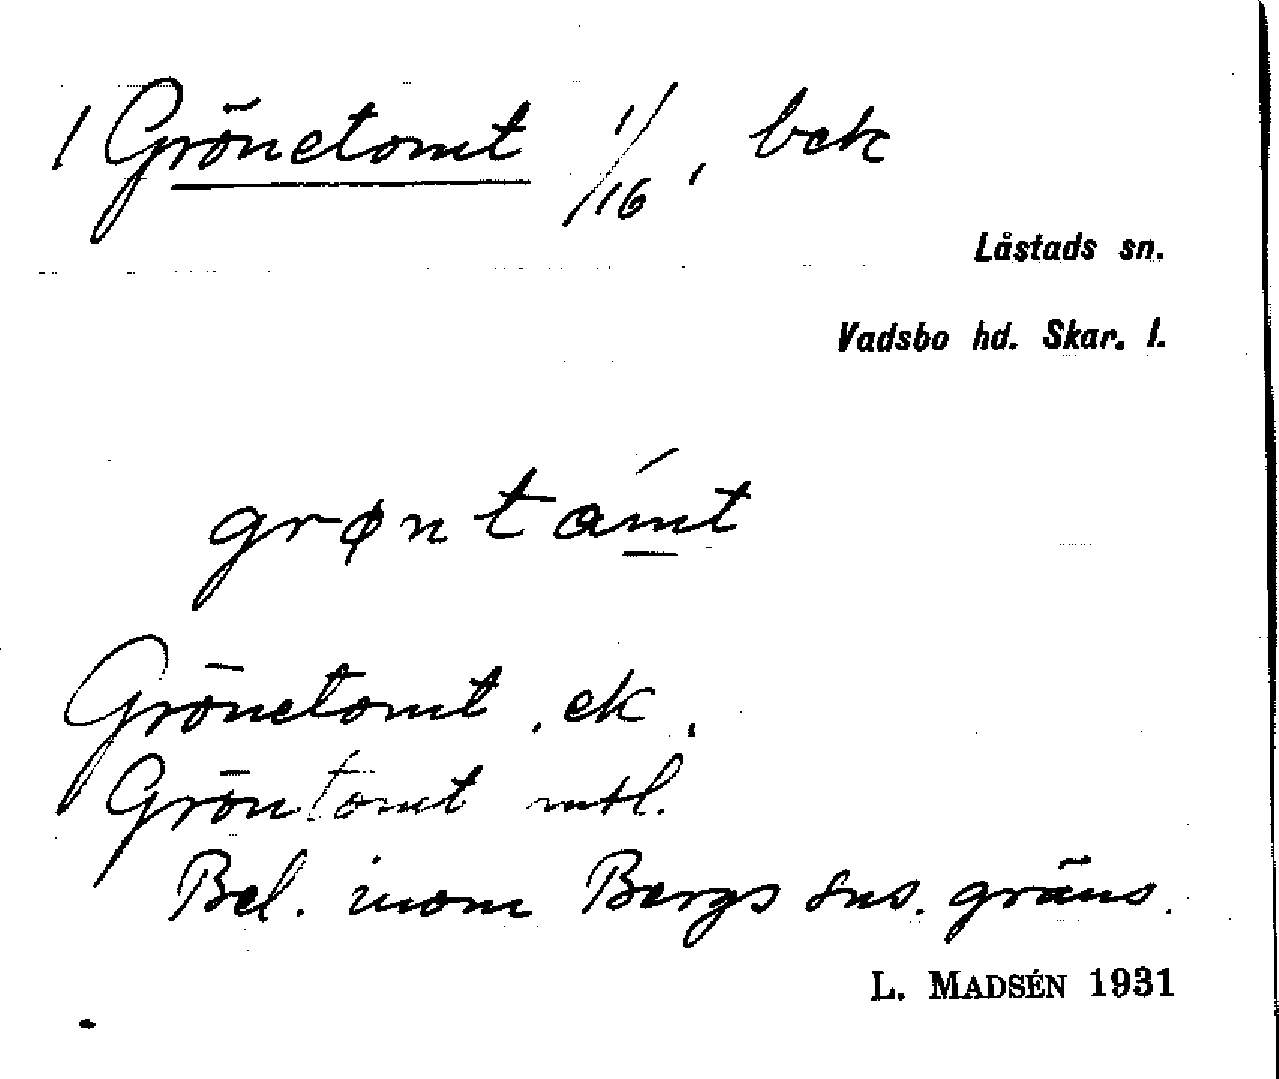 1 Grönetomt 1/16, bek
Låstads sn.
Vadsbo hd. Skar. l.
grøntámt
Grönetomt. ek.
Gröntomt mtl.
Bel. inom Bergs sns. gräns.
L. MADSÉN 1931